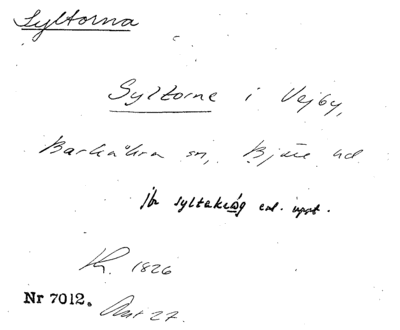 Syltorna
Syltorne i Vejby,
Barkåkra sn, Bjäre hd
jfr syltekrog enl. uppt.
Kr. 1826
Nr 7012. Ant 27.